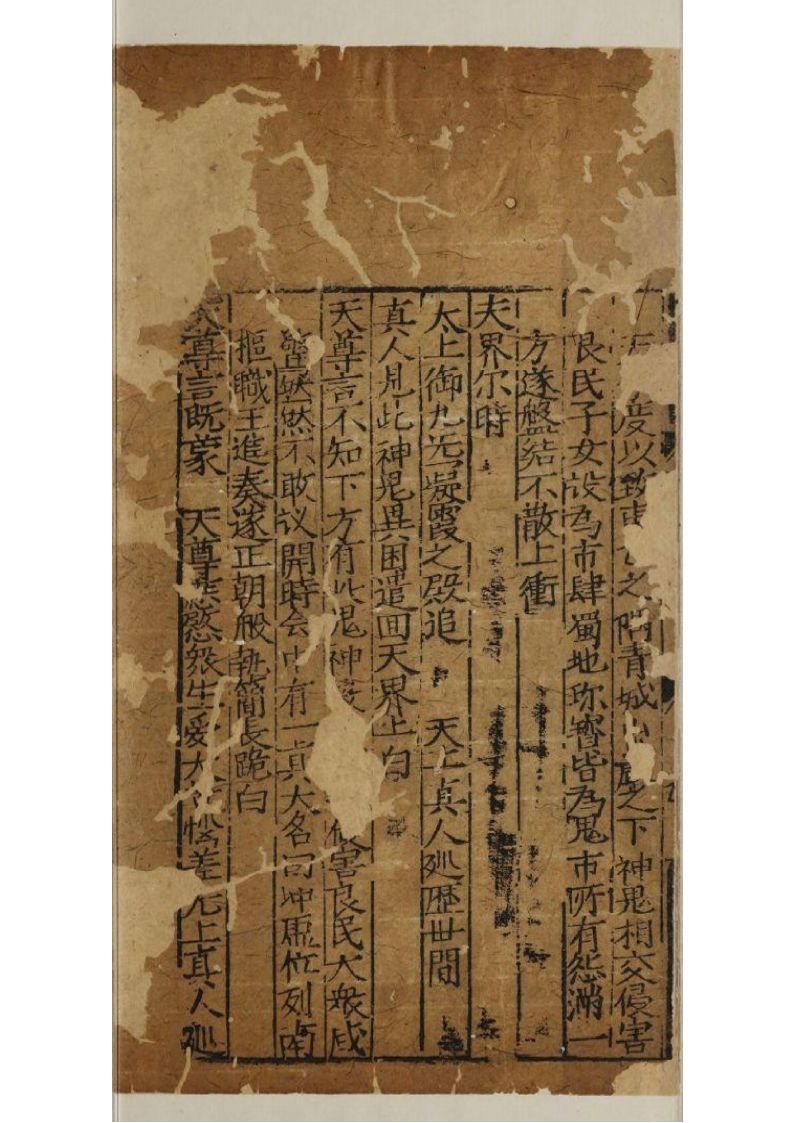 度以致 之隅青城 之下神鬼相交侵害
良民子女設為市肆蜀地珎寳皆為鬼市所有怨滿一
方遂盤結不散上衝
天界尔時
太上御九光凝霞之殿追 天上真人廵歷世間
真人見此神鬼異困遣回天界上白
天尊言不知下方有此鬼神 侵害良民大衆咸
默然不敢议開時会中有一真大名曰冲虛位列南
樞職王進奏遂正朝服執簡長跪白
天尊言既蒙 天尊慈慜衆生 差 上真人廵